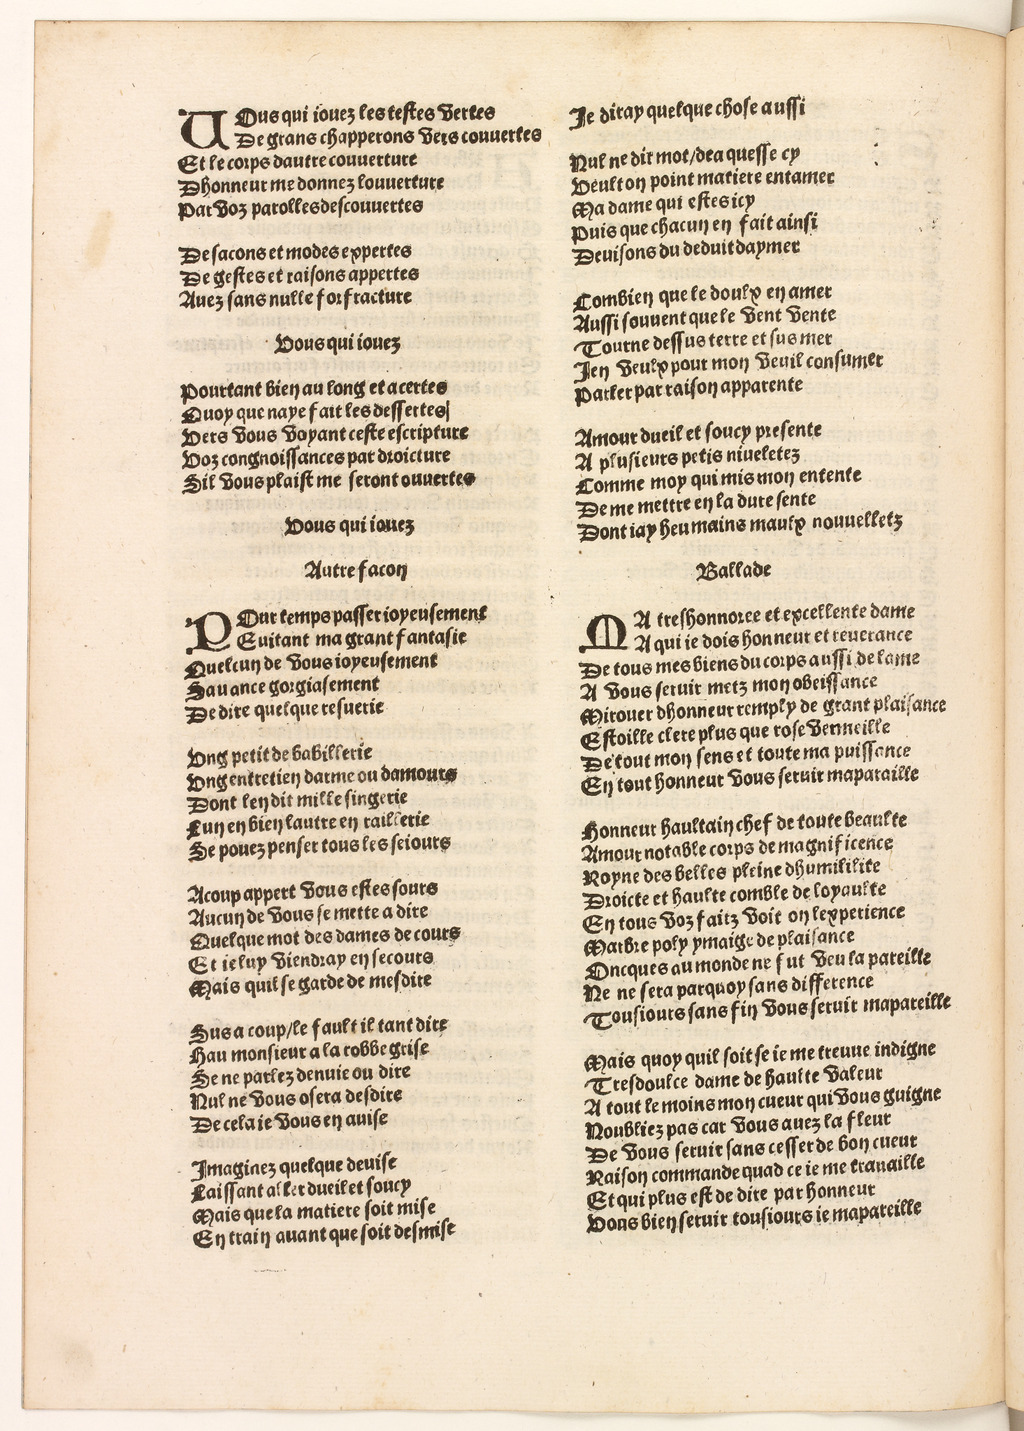 VOus qui iouez les testes vertes
De grans chapperons vers couuertes
Et le corps dautre couuerture
Dhonneur me donnez louuerture
Par voz parolles descouuertes
De facons et modes expertes
De gestes et raisons appertes
Auez sans nulle forfracture
Vous qui iouez
Pourtant bien au long et a certes
Quoy que naye fait les dessertes
Vers vous voyant ceste escripture
Voz congnoissances par droicture
Sil vous plaist me seront ouuertes
Vous qui iouez
Autre facon
POur temps passer ioyeusement
Euitant ma grant fantasie
Quelcun de vous ioyeusement
Sauance gorgiasement
De dire quelque resuerie
Ung petit de babillerie
Ung entretien darme ou damours
Dont len dit mille singerie
Lun en bien lautre en raillerie
Se pouez penser tous les seiours
Acoup appert vous estes sours
Aucun de vous se mette a dire
Quelque mot des dames de cours
Et ie luy viendray en secours
Mais quil se garde de mesdire
Sus a coup/le fault il tant dire
Hau monsieur a la robbe grise
Se ne parlez denuie ou dire
Nul ne vous osera desdire
De cela ie vous en auise
Imaginez quelque deuise
Laissant aller dueil et soucy
Mais que la matiere soit mise
En train auant que soit desmise
Je diray quelque chose aussi
Nul ne dit mot/dea quesse cy
Veult on point matiere entamer
Ma dame qui estes icy
Puis que chacun en fait ainsi
Deuisons du deduit daymer
Combien que le doulx en amer
Aussi souuent que le vent vente
Tourne dessus terre et sus mer
Jen veulx pour mon veuil consumer
Parler par raison apparente
Amour dueil et soucy presente
A plusieurs petis niueletez
Comme moy qui mis mon entente
De me mettre en la dure sente
Dont iay heu mains maulx nouuelletz
Ballade
MA treshonnoree et excellente dame
A qui ie dois honneur et reuerance
De tous mes biens du corps aussi de lame
A vous seruir metz mon obeissance
Mirouer dhonneur remply de grant plaisance
Estoille clere plus que rose vermeille
De tout mon sens et toute ma puissance
En tout honneur vous seruir maparaille
Honneur haultain chef de toute beaulte
Amour notable corps de magnificence
Royne des belles pleine dhumililite
Droicte et haulte comble de loyaulte
En tous voz faitz voit on lexperience
Marbre poly ymaige de plaisance
Oncques au monde ne fut veu la pareille
Ne ne sera parquoy sans difference
Tousiours sans fin vous seruir mapareille
Mais quoy quil soit se ie me treuue indigne
Tresdoulce dame de haulte valeur
A tout le moins mon cueur qui vous guigne
Noubliez pas car vous auez la fleur
De vous seruir sans cesser de bon cueur
Raison commande quad ce ie me trauaille
Et qui plus est de dire par honneur
Vous bien seruir tousiours ie mapareille